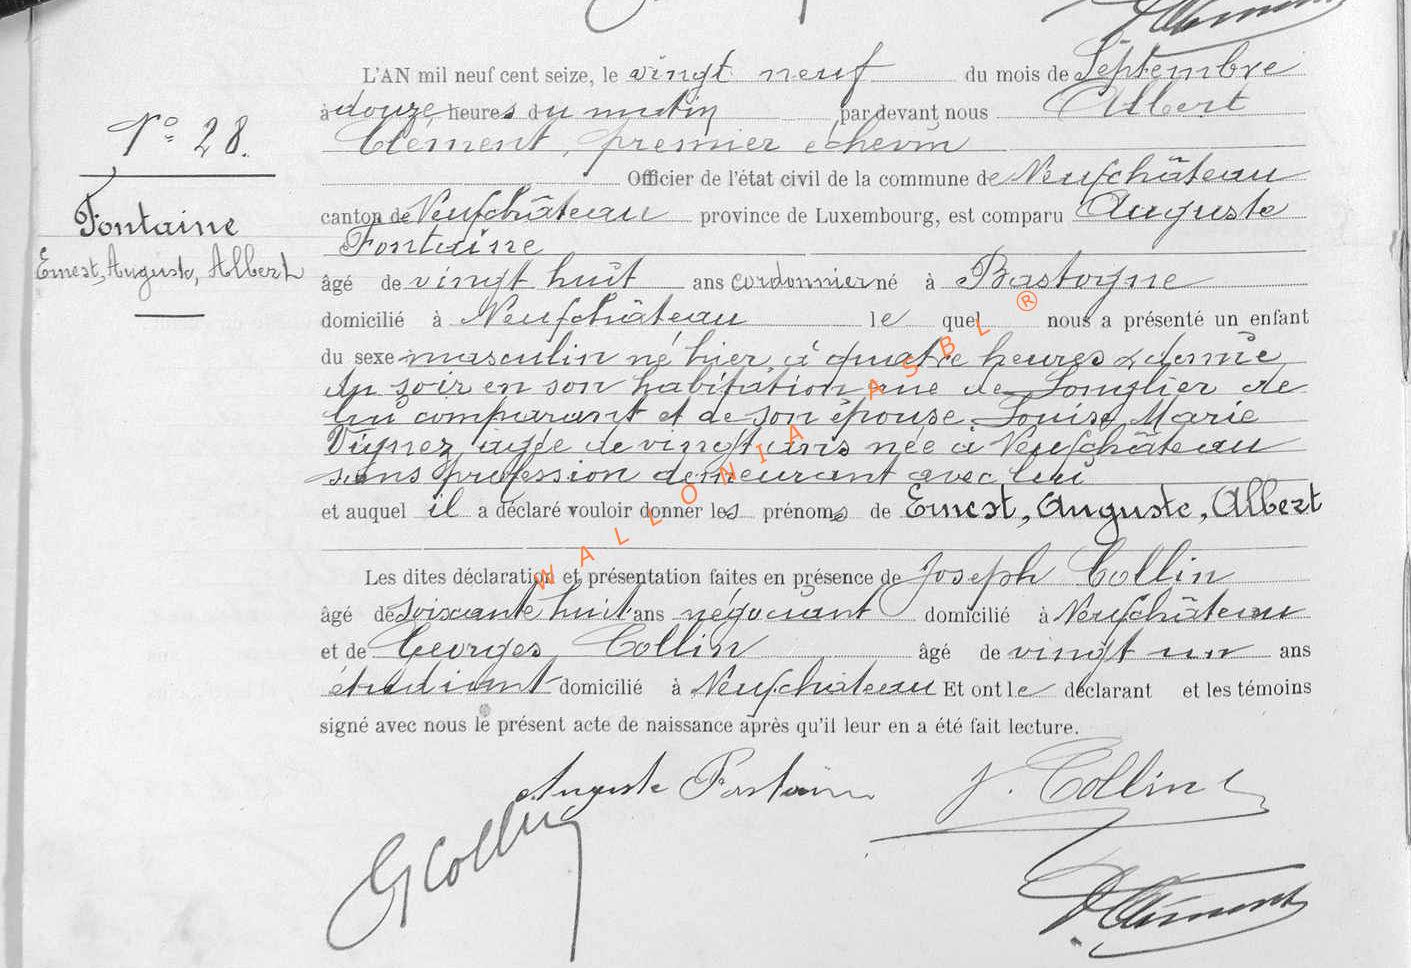 L'AN mil neuf cent seize, le vingt neuf du mois de Septembre
à douze heures du matin par devant nous Albert
Clément, premier échevin
Officier de l'état civil de la commune de Neufchâteau
canton de Neufchâteau province de Luxembourg, est comparu Auguste
Fontaine
âgé de vingt huit ans cordonnier né à Bastogne
domicilié à Neufchâteau le quel nous a présenté un enfant
du sexe masculin né hier, à quatre heures & demie
du soir en son habitation rue de Longlier de
lui comparant et de son épouse Louise Marie
Vignez, agée de vingt ans née à Neufchâteau
sans profession demeurant avec lui
et auquel il a déclaré vouloir donner les prénoms de Ernest, Auguste, Albert
Les dites déclaration et présentation faites en présence de Joseph Collin
âgé de soixante huit ans négociant domicilié à Neufchâteau
et de Georges Collin âgé de vingt un ans
étudiant domicilié à Neufchâteau Et ont le déclarant et les témoins
signé avec nous le présent acte de naissance après qu'il leur en a été fait lecture.
Auguste Fontaine J. Collin
G Collin
AClément
N° 28.
Fontaine
Ernest, Auguste, Albert
WALLONIA ASBL ®